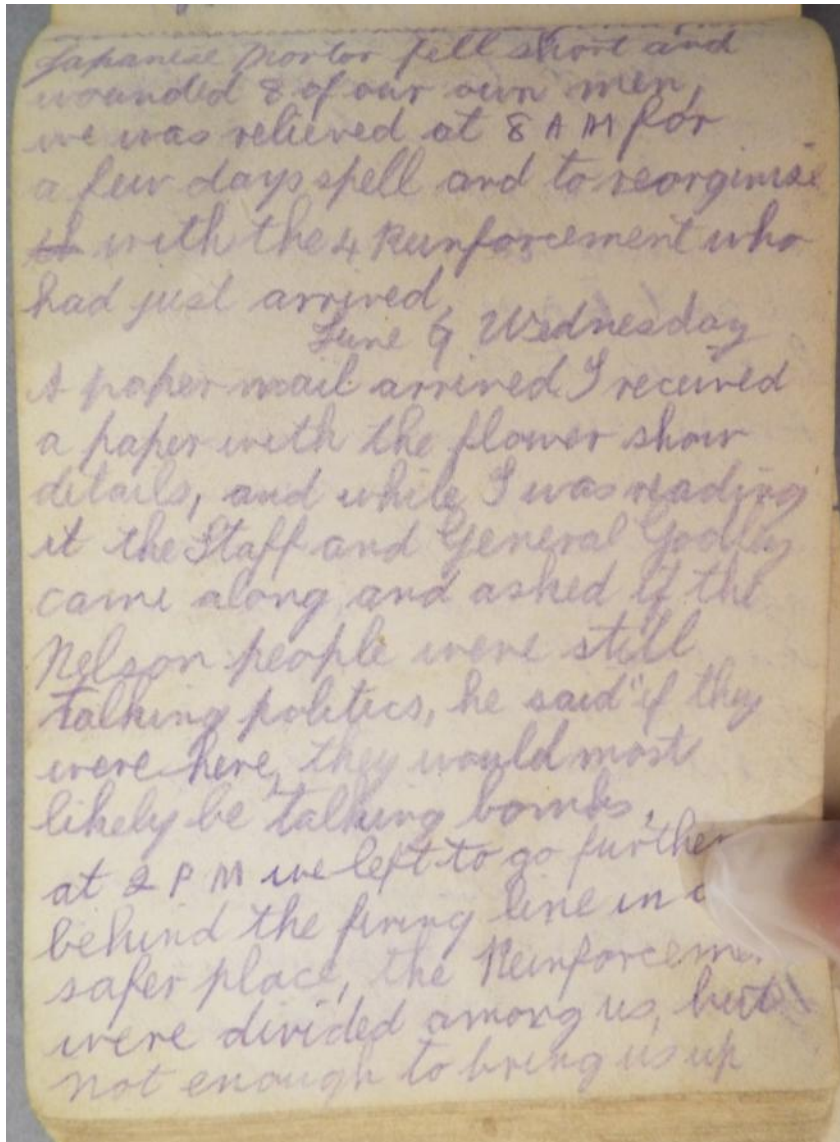 Japanese Mortor fell short and
wounded 8 of our own men,
we was relieved at 8 A M for
a few days spell and to reorginise
with the 4 Reunforcement who
had just arrived,
June 9 Wednesday
A paper mail arrived I received
a paper with the flower show
details, and while I was reading
it the Staff and General Godley
came along and asked if the
Nelson people were still
talking politics, he said "if they
were here, they would most
likely be talking bombs,
at 2 P M we left to go further
behind the firing line in
safer place, the
were divided among us, but
not enough to bring us up